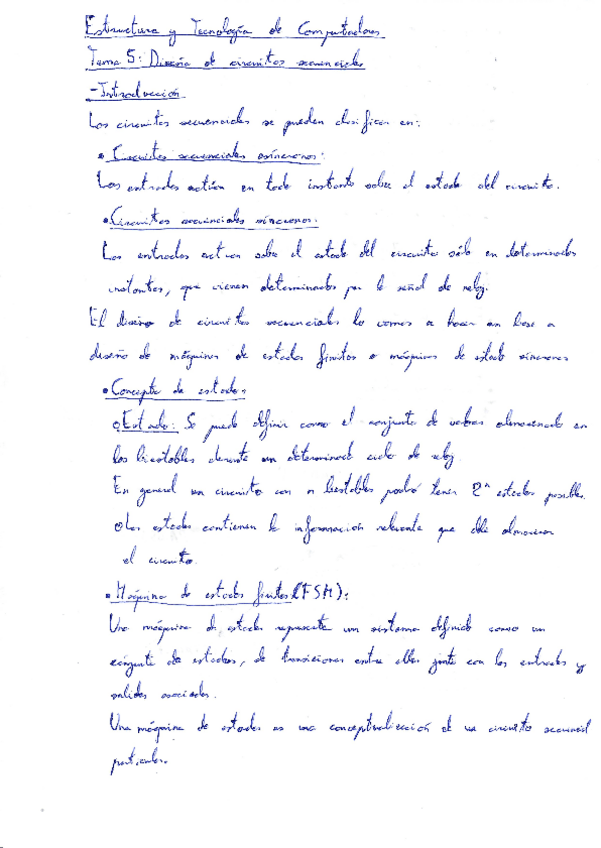 Estructura y Tecnología de Computadores
Tema 5: Diseño de circuitos secuenciales
- Introducción
Los circuitos secuenciales se pueden clasificar en:
• Circuitos secuenciales asíncronos:
Las entradas actúan en todo instante sobre el estado del circuito.
• Circuitos secuenciales síncronos:
Las entradas actúan sobre el estado del circuito sólo en determinados
instantes, que vienen determinados por la señal de reloj.
El diseño de circuitos secuenciales lo vamos a hacer en base a
diseño de máquinas de estados finitos o máquinas de estado síncronas
• Concepto de estado:
o Estado: Se puede definir como el conjunto de valores almacenado en
los biestables durante un determinado ciclo de reloj
En general un circuito con n biestables podrá tener 2ⁿ estados posibles.
o Los estados contienen la información relevante que debe almacenar
el circuito.
• Máquina de estados finitos (FSM):
Una máquina de estados representa un sistema definido como un
conjunto de estados, de transiciones entre ellos junto con las entradas y
salidas asociadas.
Una máquina de estados es una conceptualización de un circuito secuencial
particular.